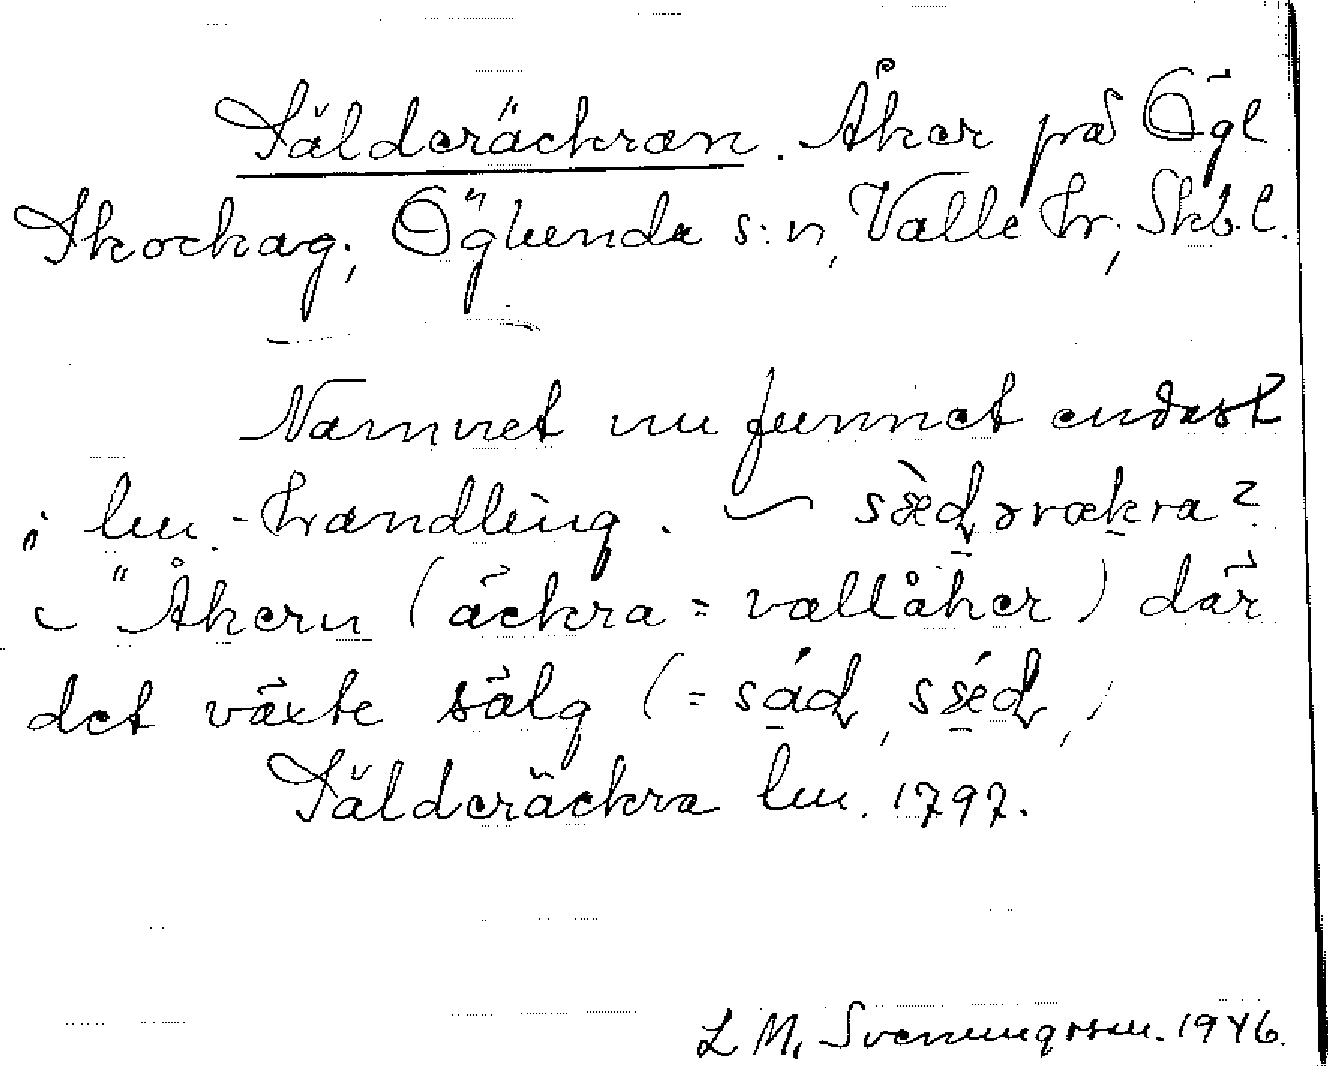 Sälderäckran. Åker på Ögl
Skockag., Öglunda s:n, Valle hr, Skb.l.
Namnet nu funnet endast
i lm.-handling. ~ sæ̀ḍərækra?
~ "Åkern (äckra = vallåker) där
det växte sälg (= sáḍ, sǽḍ,)
Sälderäckra lm. 1797.
L M. Svenungsson. 1946.